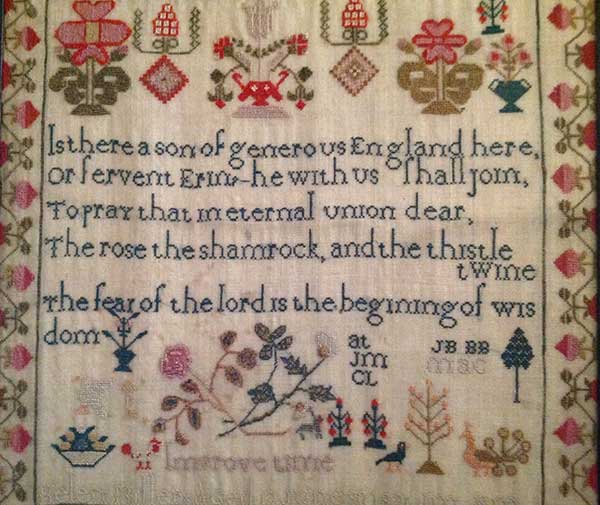 Is there a son of generous England here,
Or fervent Erin–he with us shall join,
To pray that in eternal union dear,
The rose the shamrock, and the thistle
twine
The fear of the lord is the begining of wis
dom
at
JM
CL
JB BB
mac
Improve time
Helen